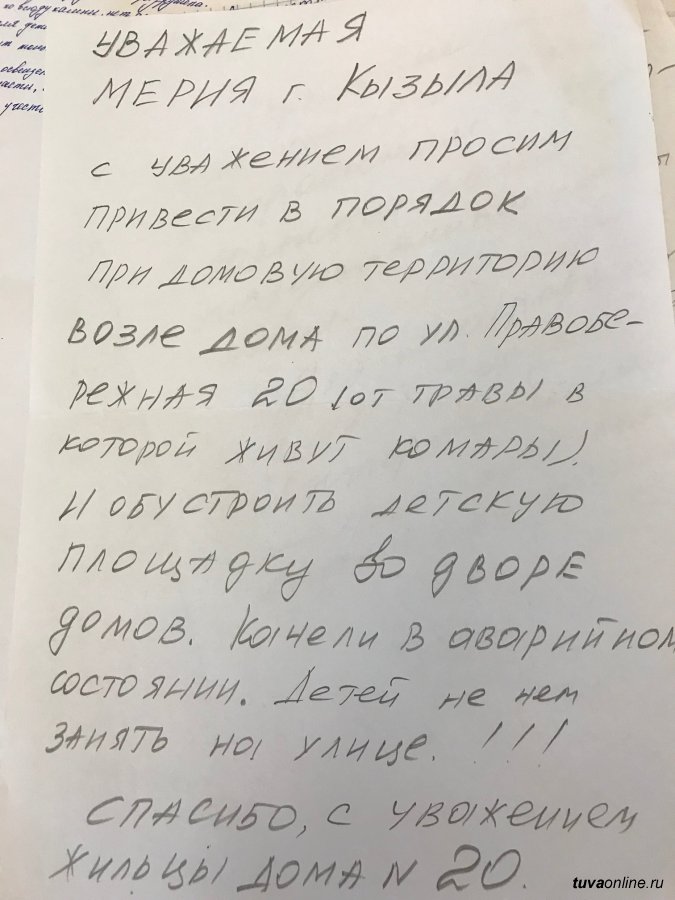 УВАЖАЕМАЯ
МЕРИЯ г. КЫЗЫЛА
с уважением просим
привести в порядок
при домовую территорию
возле дома по ул. Правобе-
режная 20 (от травы в
которой живут комары).
И обустроить детскую
площадку во дворе
домов. Качели в аварийном
состоянии. Детей не чем
занять на улице. !!!
Спасибо, с уважением
жильцы дома N 20.
tuvaonline.ru